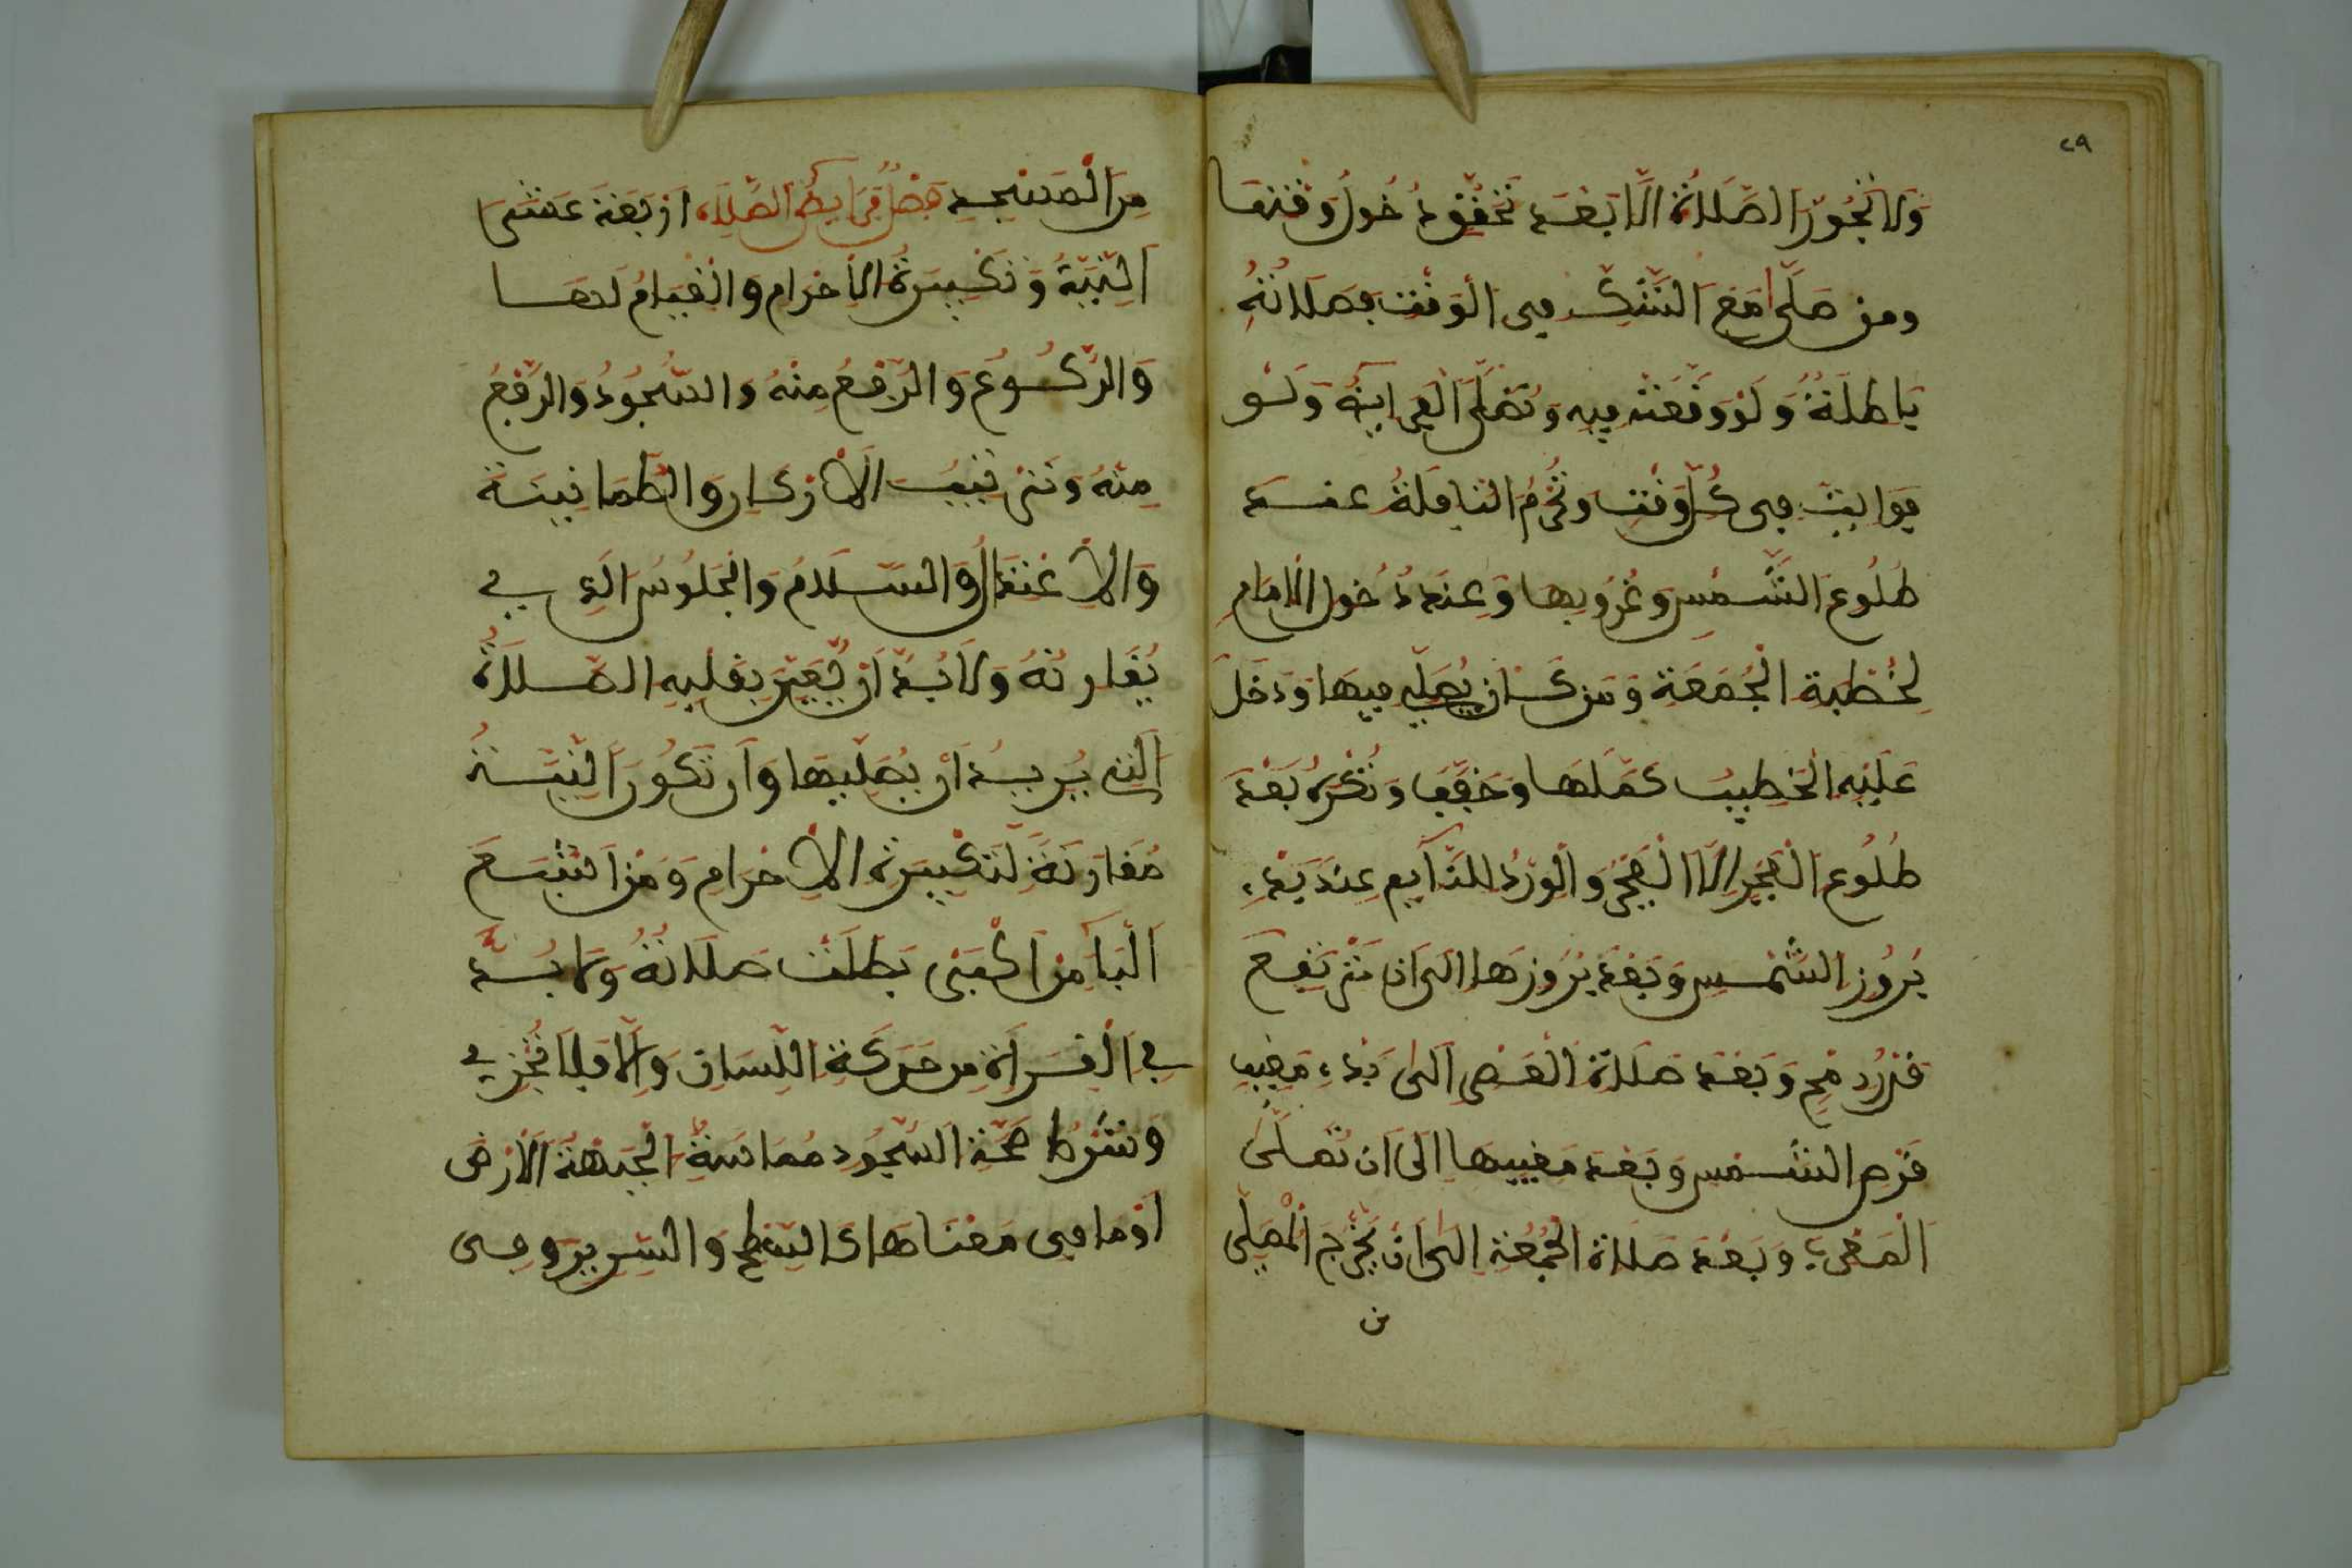 ٢٩
وَلَا تَجُوزُ الصَّلَاةُ إِلَّا بَعْدَ تَحَقُّقِ دُخُولِ وَقْتِهَا
ومن صَلَّى مَعَ الشَّكِّ في الْوَقْتِ فصَلَاتُهُ
بَاطِلَةٌ وَلَوْ وَقَعَتْ فِيهِ وَتُصَلَّى الْفَرَائِضُ وَلَوْ
فَوَائِتَ في كُلِّ وَقْتٍ وتُحْرَمُ النَّافِلَةُ عند
طُلُوعِ الشَّمْسِ وغُرُوبِهَا وَعِنْدَ دُخُولِ الْإِمَامِ
لِخُطْبَةِ الْجُمُعَةِ وَمَن كَانَ يُصَلِّي فِيهَا وَدَخَلَ
عَلَيْهِ الْخَطِيبُ كَمَّلَهَا وَخَفَّفَ وَتُكْرَهُ بَعْدَ
طُلُوعِ الْفَجْرِ إِلَّا الْفَجْرَ وَالْوِرْدَ لِلنَّائِمِ عِنْدَ بَدْءِ
بُرُوزِ الشَّمْسِ وَبَعْدَ بُرُوزِهَا إِلَى أَنْ تَرْتَفِعَ
قَدْرَ رُمْحٍ وَبَعْدَ صَلَاةِ الْعَصْرِ إِلَى بَدْءِ مَغِيبِ
قُرْصِ الشَّمْسِ وَبَعْدَ مَغِيبِهَا إِلَى أَن تُصَلَّى
الْمَغْرِبُ وَبَعْدَ صَلَاةِ الْجُمُعَةِ إِلَى أَنْ يَخْرُجَ الْمُصَلِّي
من
مِنَ الْمَسْجِدِ فَصْلٌ فَرَائِضُ الصَّلَاةِ أَرْبَعَةَ عَشَرَ
النِّيَّةُ وَتَكْبِيرَةُ الْإِحْرَامِ وَالْقِيَامُ لَهَا
وَالرُّكُوعُ وَالرَّفْعُ مِنْهُ وَالسُّجُودُ وَالرَّفْعُ
مِنْهُ وَتَرْتِيبُ الْأَرْكَانِ وَالطُّمَأْنِينَةُ
وَالْاِعْتِدَالُ وَالسَّلَامُ وَالْجُلُوسُ الَّذِي
يُقَارِنُهُ وَلَابُدَّ أَنْ يُعَيِّنَ بِقَلْبِهِ الصَّلَاةَ
الَّتِي يُرِيدُ أَنْ يُصَلِّيَهَا وَأَن تَكُونَ النِّيَّةُ
مُقَارِنَةً لِتَكْبِيرَةِ الْإِحْرَامِ وَمَنْ أَشْبَعَ
الْبَاءَ مِنْ أَكْبَرْ بَطَلَتْ صَلَاتُهُ وَلَا بُدَّ
فِي الْقِرَاءَةِ مِن حَرَكَةِ اللِّسَانِ وَإِلَّا فَلَا تُجْزِي
وشَرْطُ صِحَّةِ السُّجُودِ مُمَاسَّةُ الْجَبْهَةِ الْأَرْضَ
أَوْ مَا في مَعْنَاهَا كَالسَّطْحِ وَالسَّرِيرِ وفي